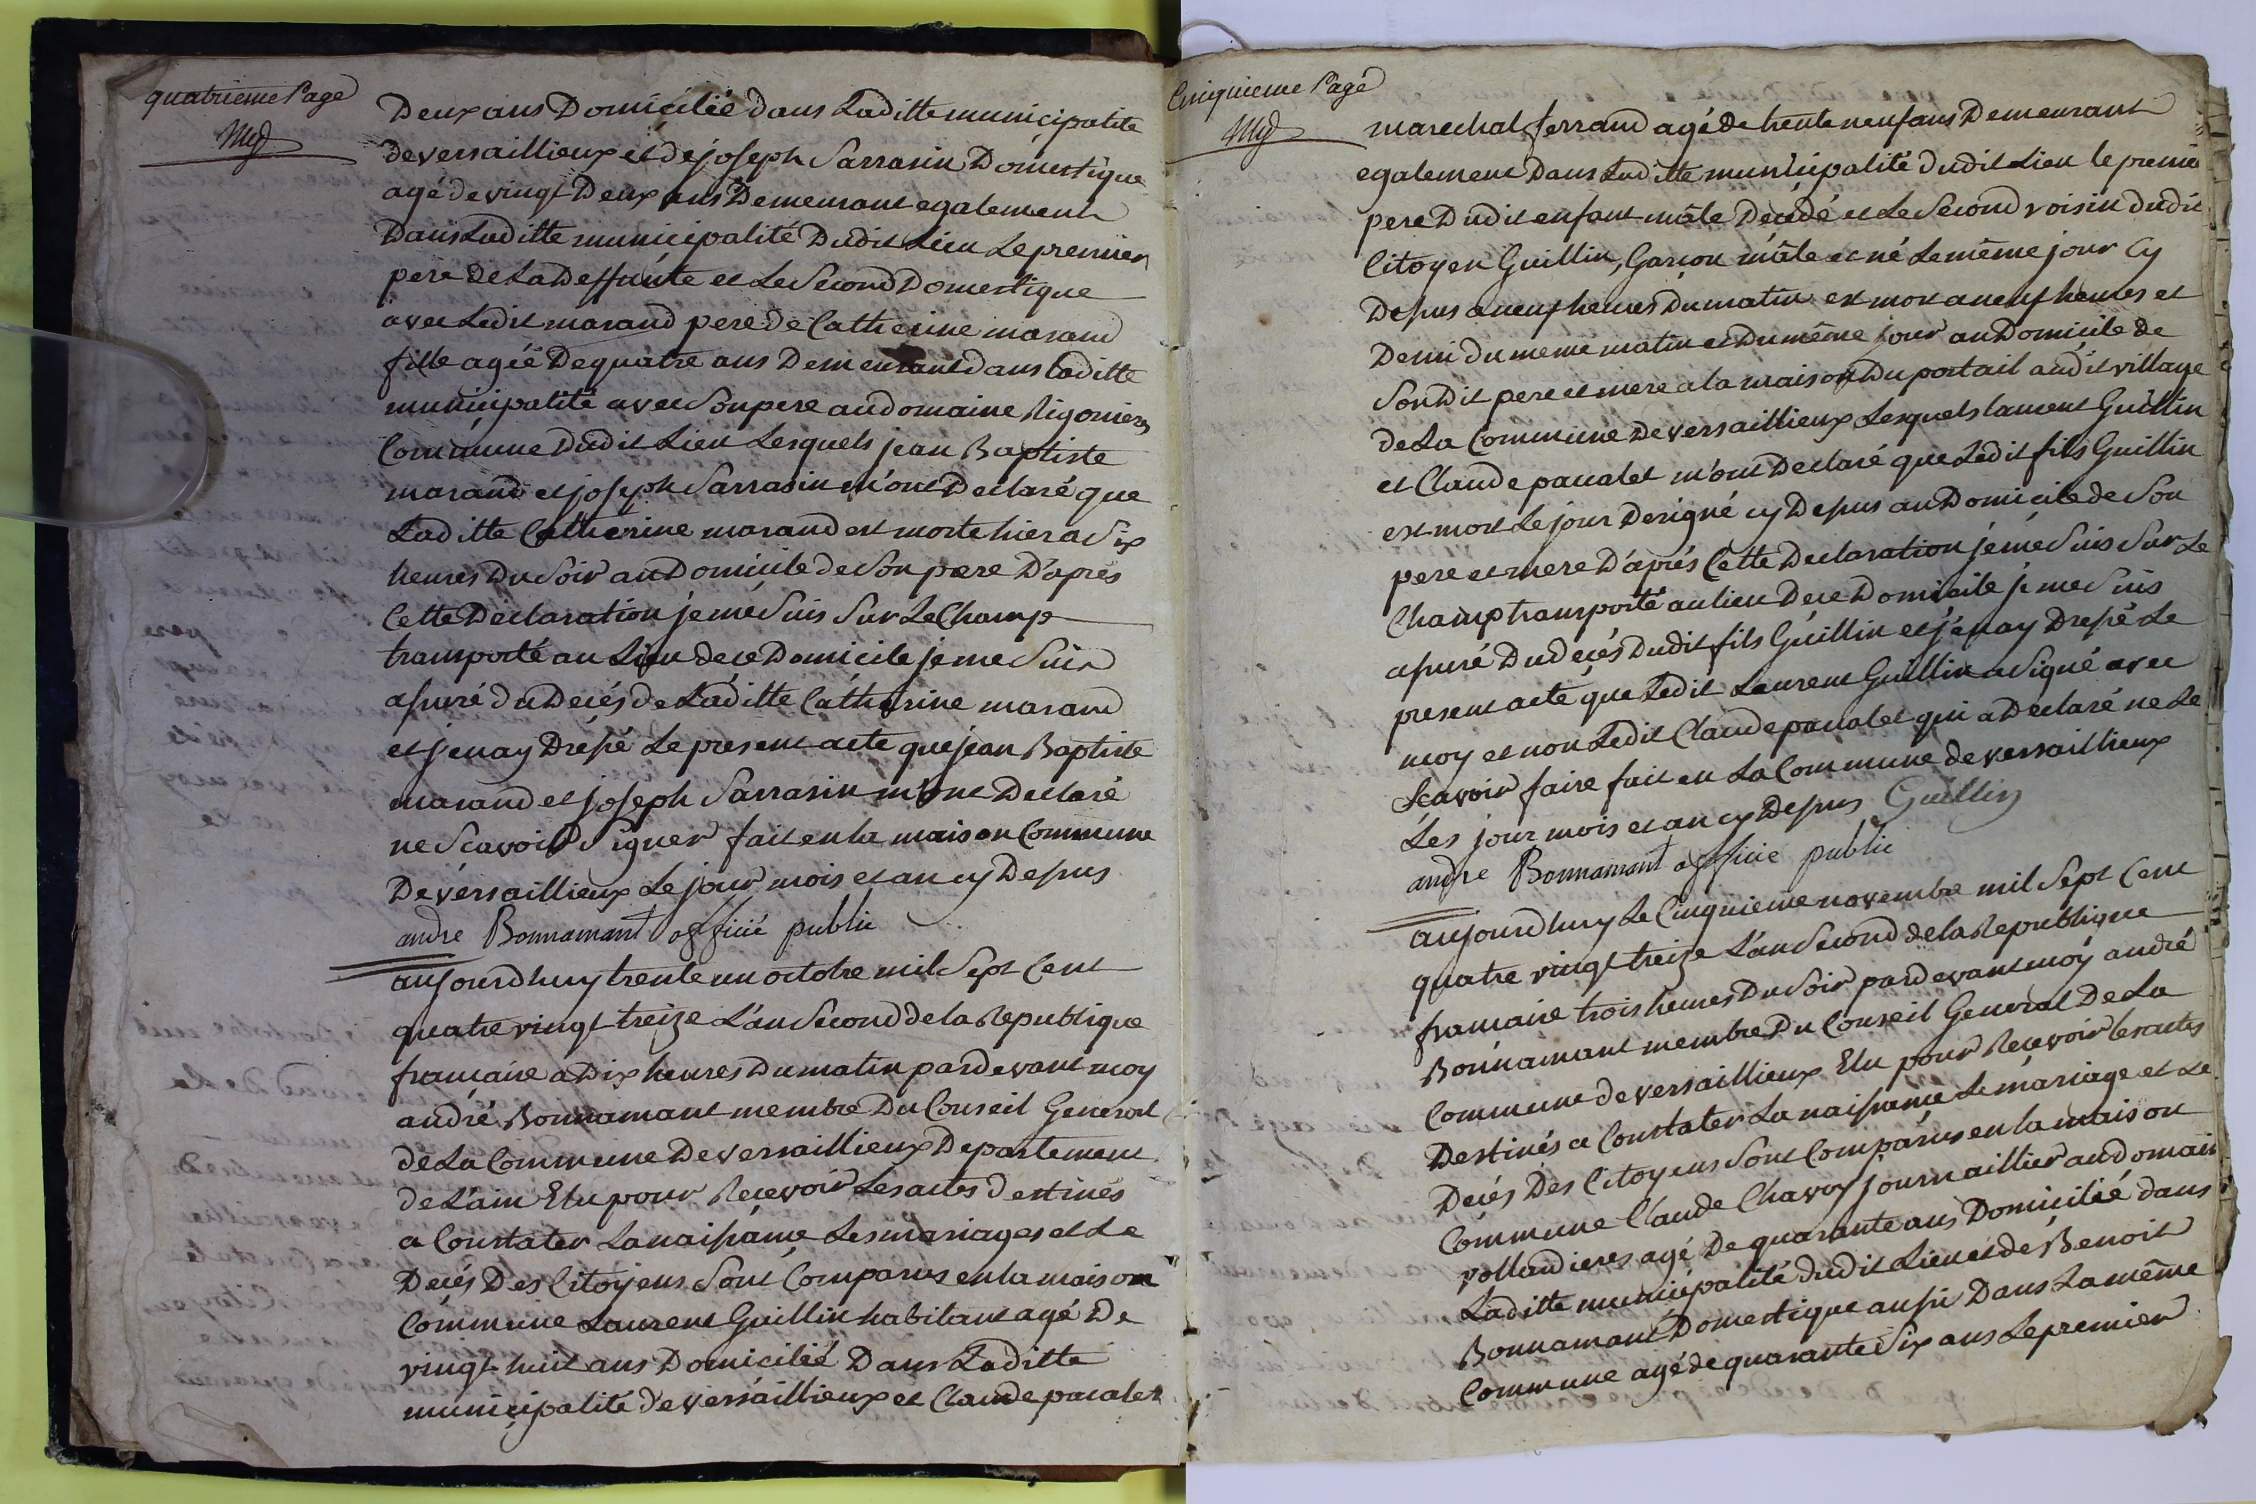 quatrieme Page
Deux ans Domicilié dans Laditte municipalité
de versaillieux et de joseph Sarrasin Domestique
agé de vingt Deux ans Demeurant egalement
Dans Laditte municipalité Dudit Lieu Le premier
pere de La Deffunte et Le Second Domestique
avec Ledit marand pere de Catherine marand
fille agée De quatre ans Demeurant dans laditte
municipalité avec Son pere au domaine Rigonieres
Commune Dudit Lieu Lesquels jean Baptiste
marand et joseph Sarrasin m'ont Declaré que
Laditte Catherine marand est morte hier a Six
heures Du Soir au Domicile de Son pere D'après
Cette Declaration je me Suis Sur Le Champ
transporté au Lieu de ce Domicile je me Suis
assuré du Decés de Laditte Catherine marand
et j'en ay Dressé Le present acte que jean Baptiste
marand et joseph Sarrasin m'ont Declaré
ne Scavoir Signer fait en la maison Commune
De versaillieux Le jour mois et an cy Dessus
andre Bonnamant officié public
aujourdhuy trente un octobre mil Sept Cent
quatre vingt treize L'an Second de la Republique
francaise a Dix heures Du matin pardevant moy
andré Bonnamant membre Du Conseil General
de La Commune De versaillieux Departement
de L'ain Elu pour Recevoir Les actes destinés
a Constater La naissance Les mariages et Le
Decés Des Citoyens Sont Comparus en la maison
Commune Laurent Guillin habitant agé De
vingt-huit ans Domicilié Dans Laditte
municipalité de versaillieux et Claude pacalet
Cinquieme Page
marechal ferrand agé de trente neuf ans Demeurant
egalement Dans Laditte municipalité dudit Lieu le premier
pere Dudit enfant mâle Decédé et Le Second voisin dudit
Citoyen Guillin, Garçon mâle et né Le même jour Cy
Dessus a neuf heures Du matin est mort a neuf heures et
Demi du meme matin et Du même jour au Domicile de
Son Dit pere et mere a la maison Du portail audit village
de La Commune De versaillieux Lesquels laurent Guillin
et Claude pacalet m'ont Declaré que Ledit fils Guillin
est mort Le jour Designé cy Dessus au Domicile de Son
pere et mere D'après Cette Declaration je me Suis Sur Le
Champ transporté au lieu De ce Domicile je me Suis
assuré Du decés Dudit fils Guillin et j'en ay Dressé Le
present acte que Ledit Laurent Guillin a Signé avec
moy et non Ledit Claude pacalet qui a Declaré ne Le
Scavoir faire fait en La Commune de versaillieux
Les jour mois et an cy Dessus Guillin
andre Bonnamant officie public
aujourdhuy Le Cinquieme novembre mil Sept Cent
quatre vingt treize L'an Second de la Republique
francaise trois heures Du Soir pardevant moy andré
Bonnamant membre Du Conseil General De La
Commune de versaillieux Elu pour Recevoir les actes
Destinés a Constater La naissance Le mariage et Le
Decés Des Citoyens Sont Comparus en la maison
Commune Claude Chavoy journaillier au domaine
pollandieres agé De quarante ans Domicilié dans
Laditte municipalité dudit Lieu et de Benoit
Bonnamant Domestique aussi Dans La même
Commune agé de quarante Six ans Le premier